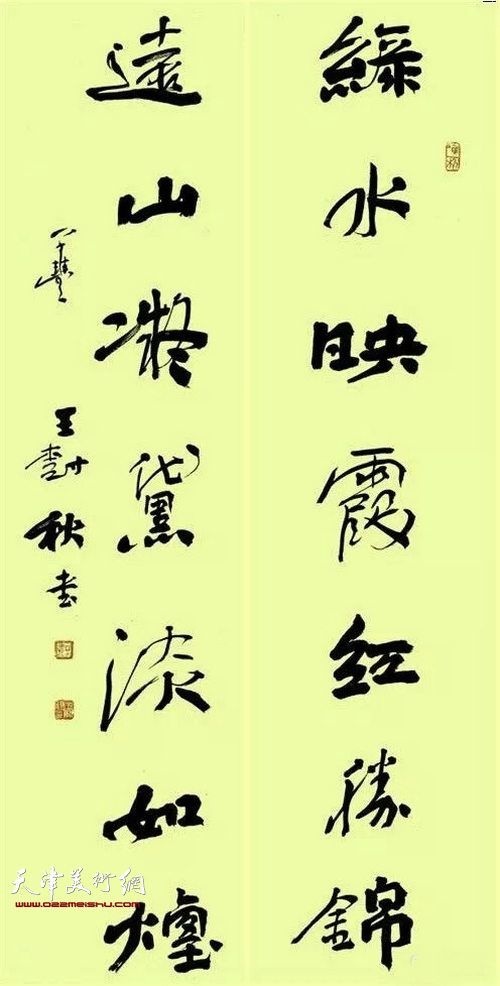 綠水映霞紅勝錦
遠山凝黛淡如煙
王樹秋书
天津美術網
www.022meishu.com